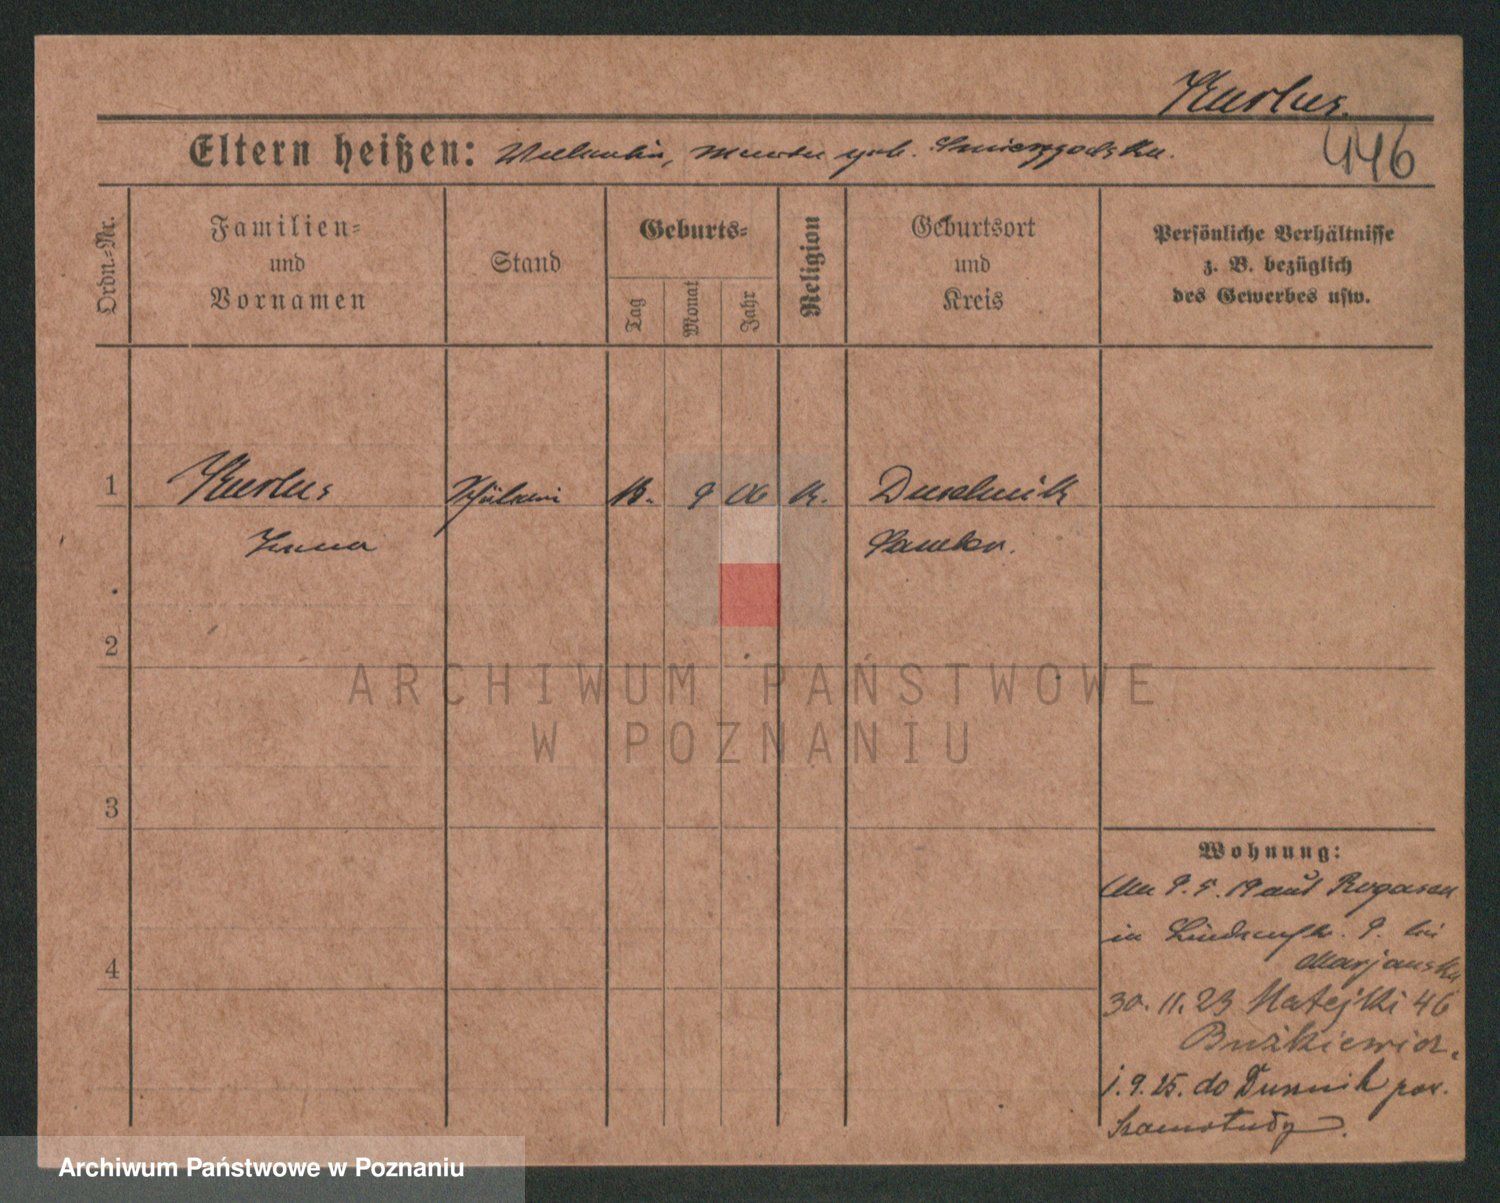 Kurlus.
446
Eltern heißen: Valentin, Maria geb.
Ordn.-Nr.
Familien-
und
Vornamen
Stand
Geburts-
Tag
Monat
Jahr
Religion
Geburtsort
und
Kreis
Persönliche Verhältnisse
z. B. bezüglich
des Gewerbes usw.
1 Kurlus Schülerin 9 06 k. Duschnik
Samter.
2
ARCHIWUM PAŃSTWOWE
W POZNANIU
3
Wohnung:
9. 5. 19 aus Rogasen
in Lindenstr. 9. bei
Marjanska
30. 11. 23 Matejki 46
Bużkiewicz.
4
1. 9. 25. do Dusznik pow.
Szamotuły.
Archiwum Państwowe w Poznaniu